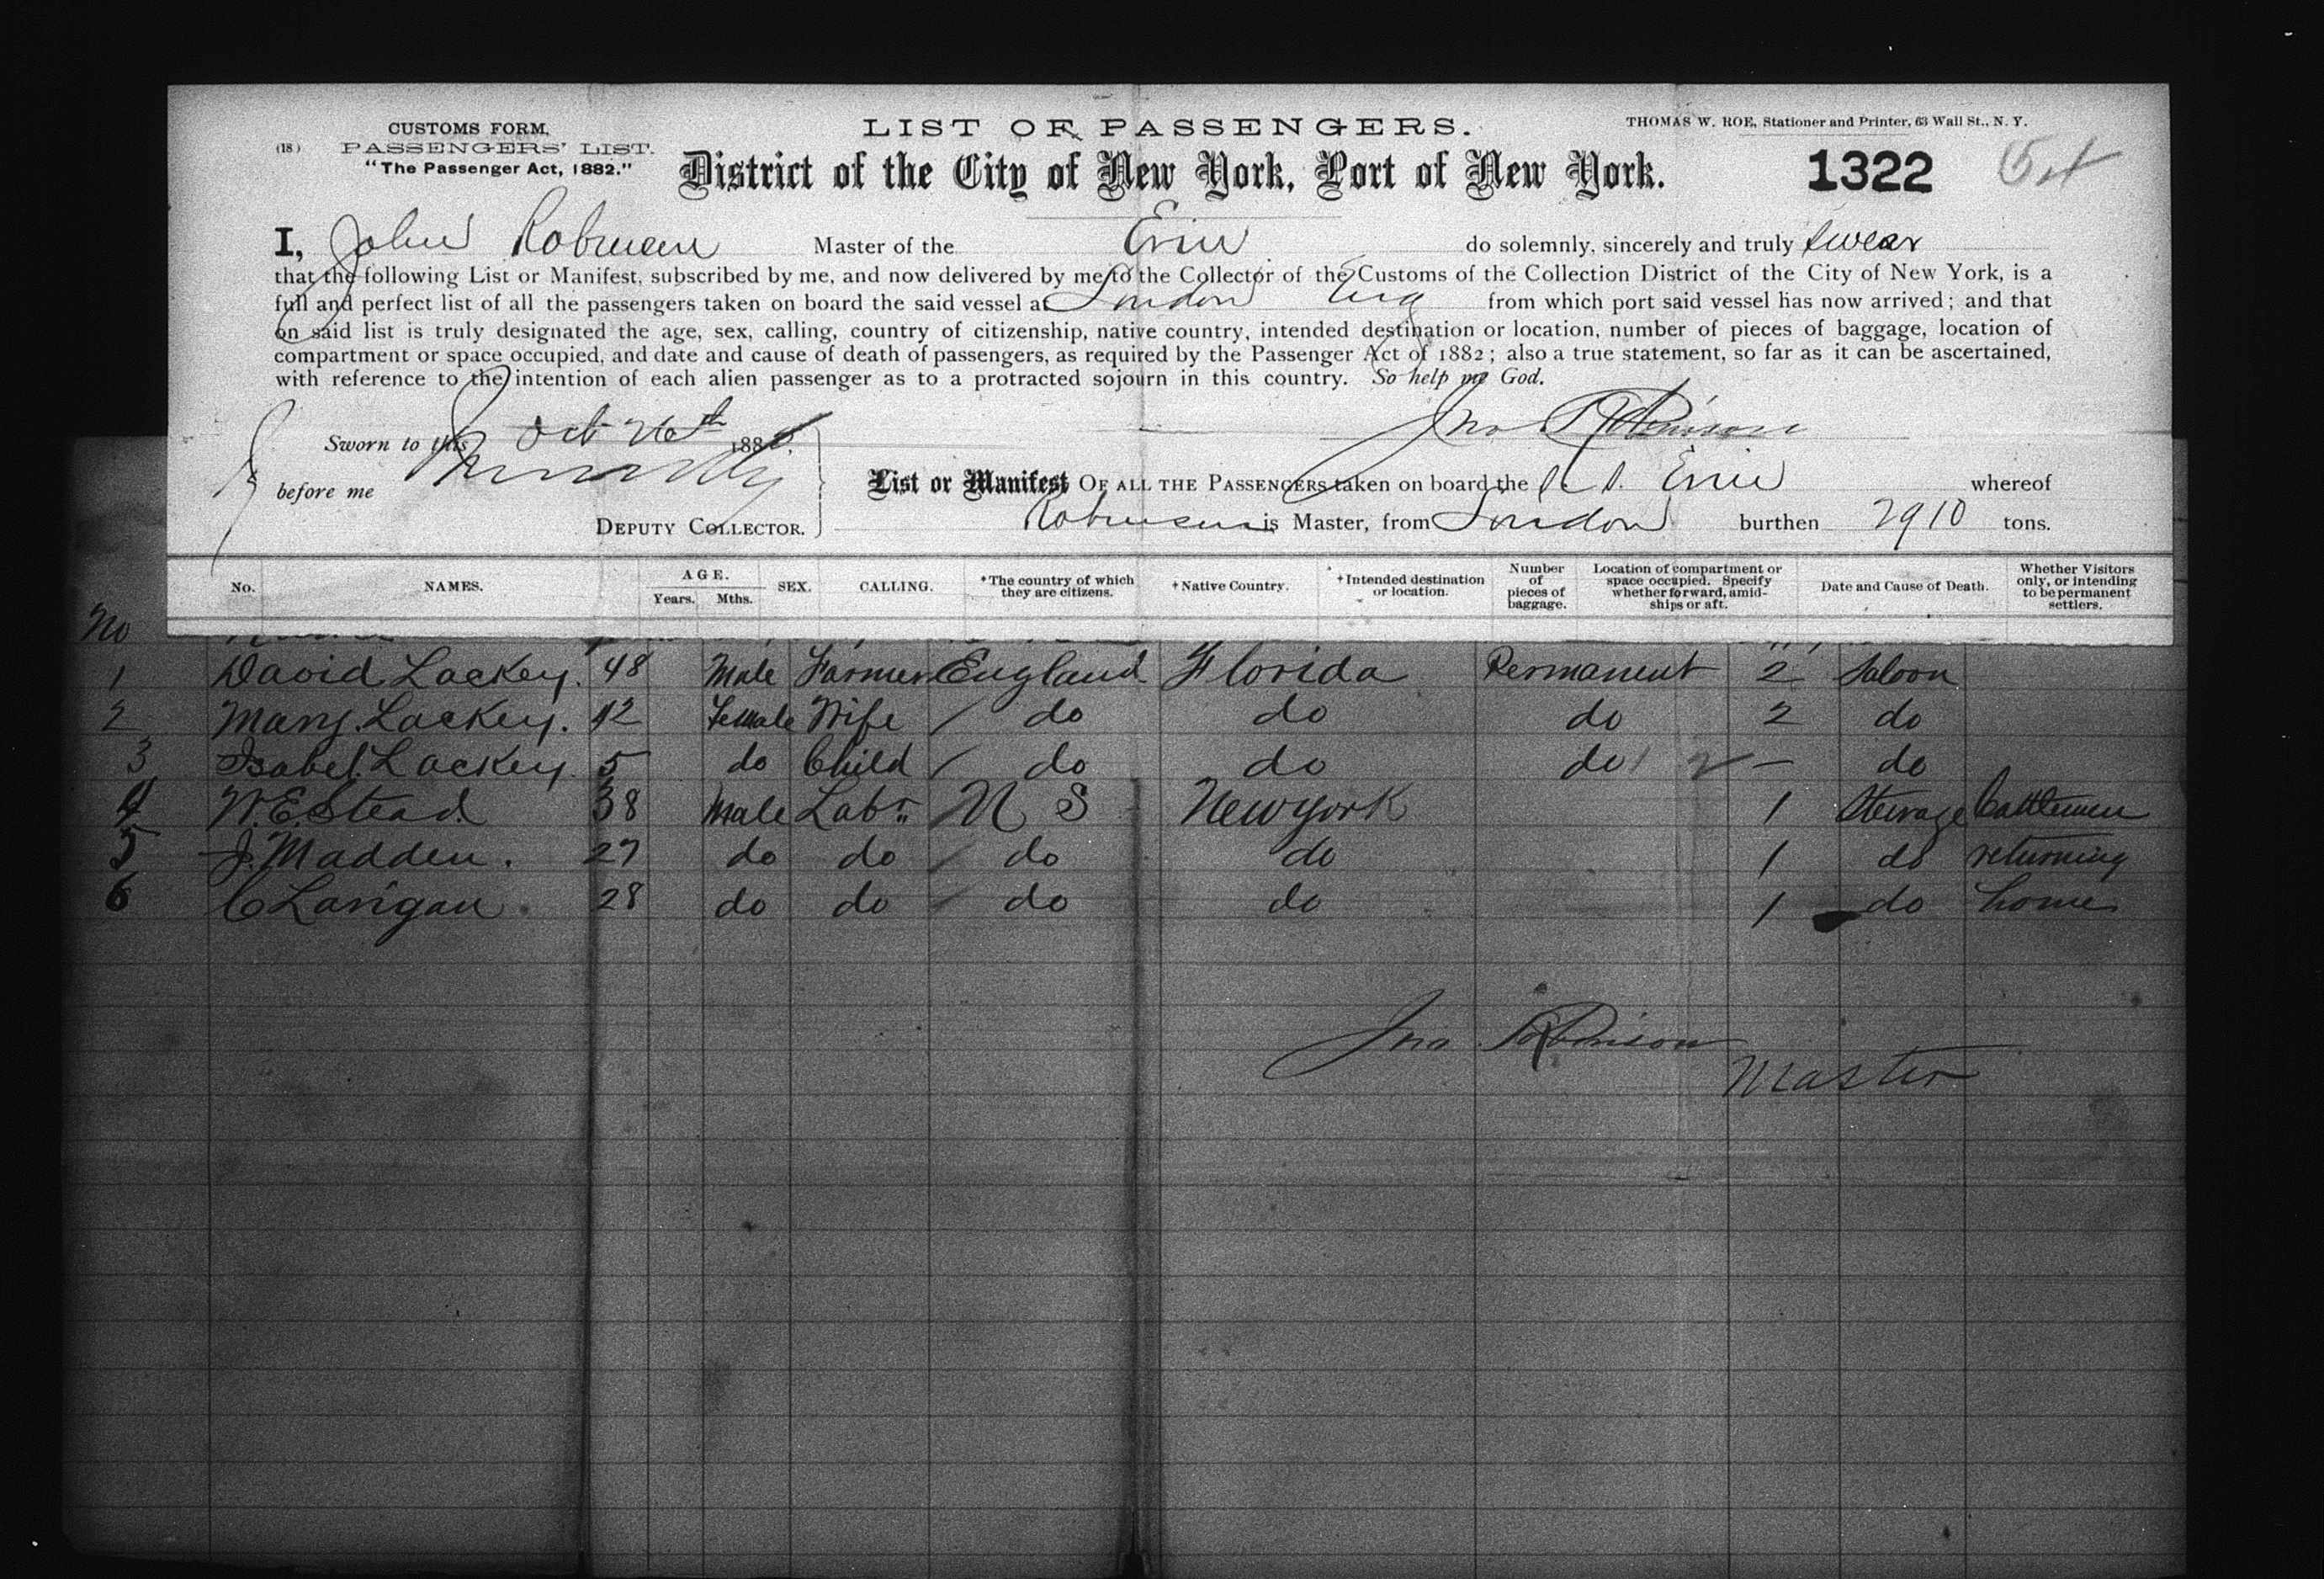 CUSTOMS FORM,
(18) PASSENGERS' LIST.
"The Passenger Act, 1882."
LIST OF PASSENGERS.
THOMAS W. ROE, Stationer and Printer, 63 Wall St., N. Y.
District of the City of New York, Port of New York.
1322
I, John Robinson Master of the Erin do solemnly, sincerely and truly swear
that the following List or Manifest, subscribed by me, and now delivered by me to the Collector of the Customs of the Collection District of the City of New York, is a
full and perfect list of all the passengers taken on board the said vessel at London Eng from which port said vessel has now arrived; and that
on said list is truly designated the age, sex, calling, country of citizenship, native country, intended destination or location, number of pieces of baggage, location of
compartment or space occupied, and date and cause of death of passengers, as required by the Passenger Act of 1882; also a true statement, so far as it can be ascertained,
with reference to the intention of each alien passenger as to a protracted sojourn in this country. So help me God.
Jno Robinson
Sworn to this Oct 26th 188
before me
DEPUTY COLLECTOR.
List or Manifest OF ALL THE PASSENGERS taken on board the S. S. Erin whereof
Robinson is Master, from London burthen 2910 tons.
No. NAMES. AGE. Years. Mths. SEX. CALLING. *The country of which they are citizens. †Native Country. †Intended destination or location. Number of pieces of baggage. Location of compartment or space occupied. Specify whether forward, amidships or aft. Date and Cause of Death. Whether Visitors only, or intending to be permanent settlers.
No
1 David Lackey. 48 Male Farmer England Florida Permanent 2 Saloon
2 Mary. Lackey. 42 Female Wife / do do do 2 do
3 Isabel. Lackey 5 do Child / do do do — do
4 W. E Stead. 38 Male Labr U S New york 1 Steerage Cattlemen
5 J. Madden. 27 do do / do do 1 do returning
6 C Larigan. 28 do do / do do 1 do home
Jno Robinson
Master